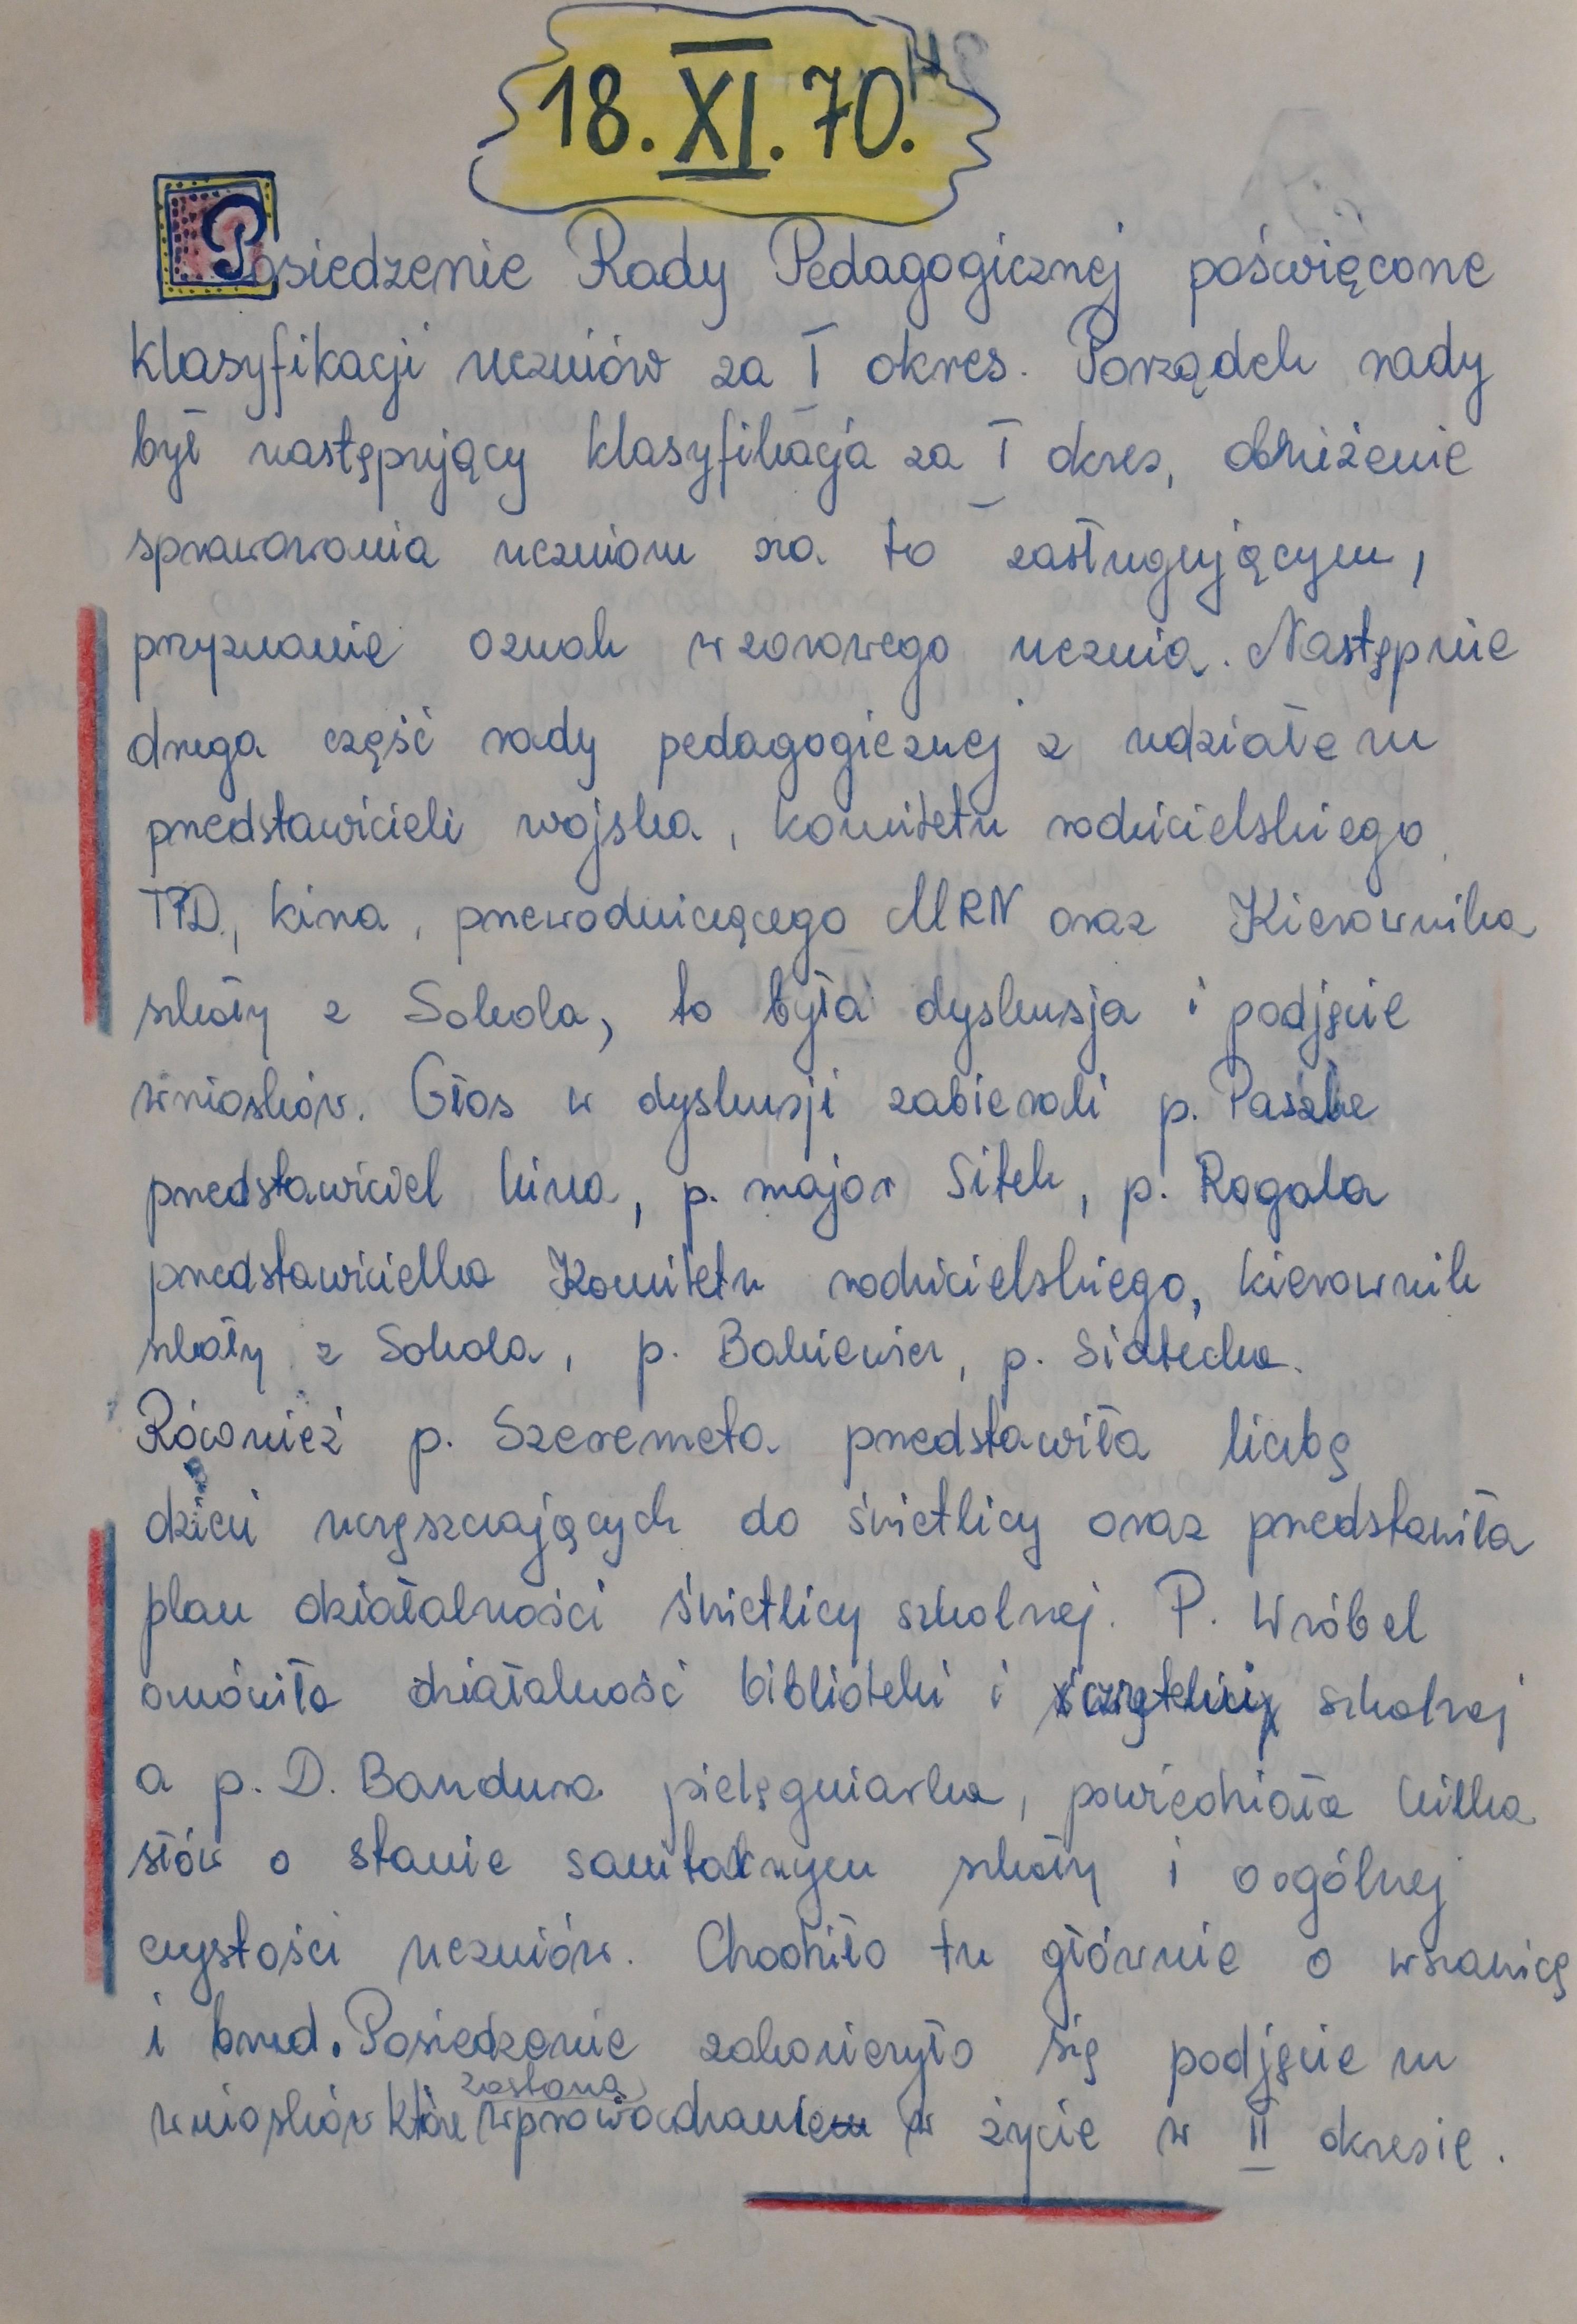 18. XI. 70.
Posiedzenie Rady Pedagogicznej poświęcone
klasyfikacji uczniów za I okres. Porządek rady
był następujący klasyfikacja za I okres, obniżenie
sprawowania uczniom na to zasługującym,
przyznanie oznak wzorowego ucznia. Następnie
druga część rady pedagogicznej z udziałem
przedstawicieli wojska, komitetu rodzicielskiego,
TPD, kina, przewodniczącego MRN oraz Kierownika
szkoły z Sokola, to była dyskusja i podjęcie
wniosków. Głos w dyskusji zabierali p.
przedstawiciel kina, p. major Sitek, p. Rogala
przedstawicielka Komitetu rodzicielskiego, kierownik
szkoły z Sokola, p. Bakiewicz, p. Siatecka.
Również p. Szeremeta przedstawiła liczbę
dzieci uczęszczających do świetlicy oraz przedstawiła
plan działalności świetlicy szkolnej. P. Wróbel
omówiła działalność biblioteki i szkolnej
a p. D. Bandura pielęgniarka, powiedziała kilka
słów o stanie sanitarnym szkoły i o ogólnej
czystości uczniów. Chodziło tu głównie o wszawicę
i brud. Posiedzenie zakończyło się podjęciem
zostaną
wniosków które wprowadzaniem w życie w II okresie.